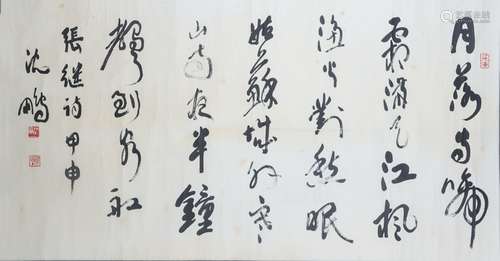 月落乌啼
霜满天江枫
渔火对愁眠
姑苏城外寒
山寺夜半钟
声到客船
张继诗甲申
沈鹏